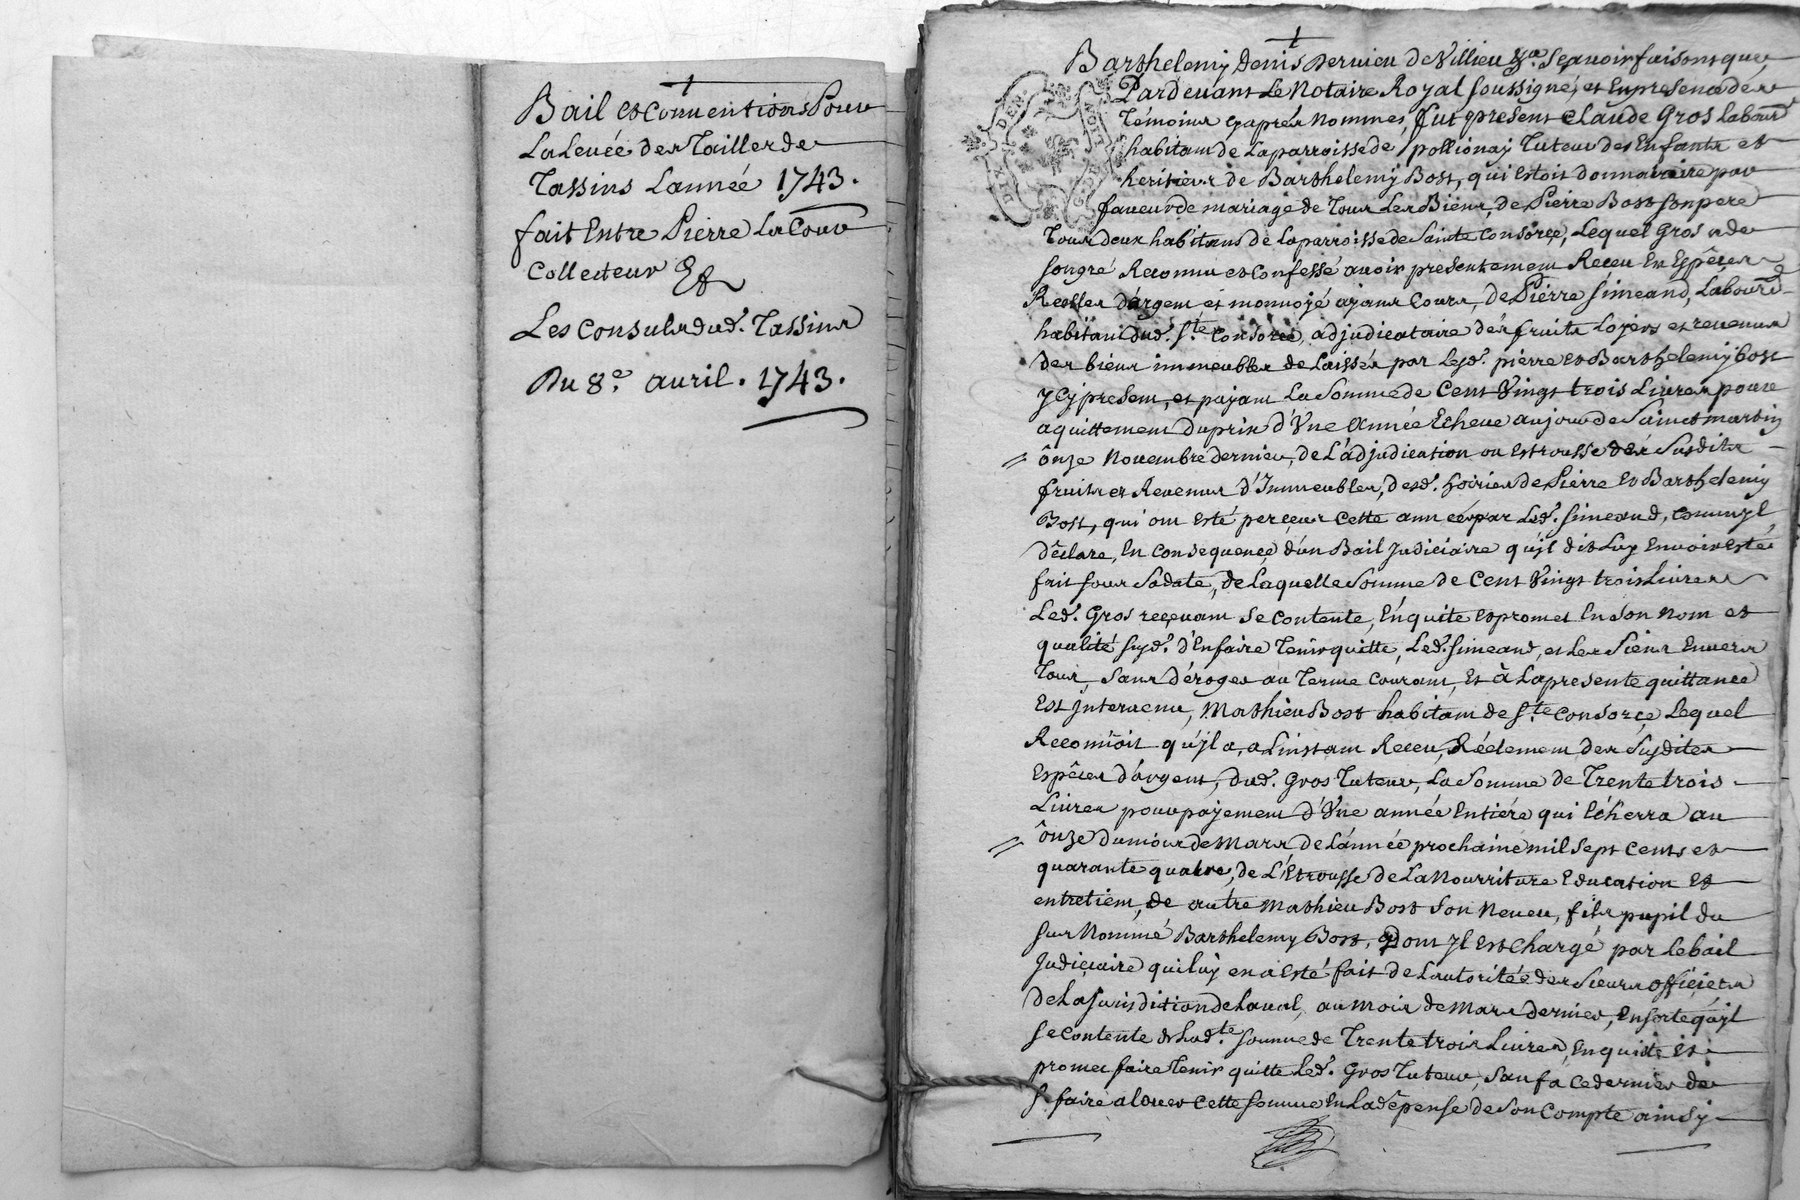 Bail et conventions Pour
La Levée des Tailles de
Tassins Lannée 1743.
fait Entre Pierre La Cour
Collecteur Et
Les Consuls dud. Tassins
Du 8e avril. 1743.
Barthelemy Denis Dervieu de Villieu &a. Sçavoir faisons que
Pardevant Le Notaire Royal soussigné, et En presence des
Témoins cy aprés Nommés, fut present Claude Gros Labour
habitant de La parroisse de pollionay Tuteur des Enfants et
heritiers de Barthelemy Bost, qui Estoit donnataire par
faveur de mariage de Tous Les Biens, de Pierre Bost son pere
Tous deux habitans de La parroisse de Sainte Consorce, Lequel Gros a de
son gré Reconnu et Confessé avoir presentement Receu En Espéces
Reelles d'argent et monnoyé ayans Cours, de Pierre Simeand, Labourd.
habitant dud. Ste Consorce, adjudicataire dés fruits Loyers et revenus
des biens immeubles de Laissés par Lesd. pierre et Barthelemy bost
Ycy present, et payant La Somme de Cent Vingt trois Livres pour
aquittement du prix d'Vne Année Echeue au jour de Sainct martin
ônze Novembre dernier, de L'adjudication ou Estrousse dés Susdits
fruits et Revenus d'Immeubles, desd. hoiries de Pierre Et Barthelemy
Bost, qui ont Esté perceus Cette année par Led. Simeand, Comm'yl
déclare, En Consequence d'un Bail Judiciaire qu'jl dit Luy En avoir Esté
fait sous Sa date, de Laquelle Somme de Cent Vingt trois Livres
Led. Gros reçevant Se Contente, En quite et promet En Son Nom et
qualité susd. d'En faire Tenir quitte, Led. Simeand, et Les Siens Envers
Tous, Sans déroger au Terme Courant, Et à La presente quittance
Est Jntervenu, Mathieu Bost habitant de Ste Consorce Lequel
Reconnoit qu'jl a, a L'instant Receu, Réelement des Susdites
Espéces d'argent, dud. Gros Tuteur, La Somme de Trente trois
Livres pour payement d'Vne année Entiére qui Echerra au
ônze du mois de Mars de L'année prochaine mil Sept Cents et
quarante quatre, de L'Etrousse de La Nourriture Education Et
entretient, de autre Mathieu Bost Son Neveu, fils pupil du
sus Nommé Barthelemy Bost, dont Jl Est Chargé par Le bail
Judiciaire qui luy en a Esté fait de L'autoritée des Sieurs officiers
de La Jurisdition de Laval, au Mois de Mars dernier, En sorte qu'jl
Se Contente de Lad.te Somme de Trente trois Livres, En quitte Et
promet faire Tenir quitte Led. Gros Tuteur, Sauf a Ce dernier de
S. faire aloues Cette Somme En La dépense de Son Compte ainsy